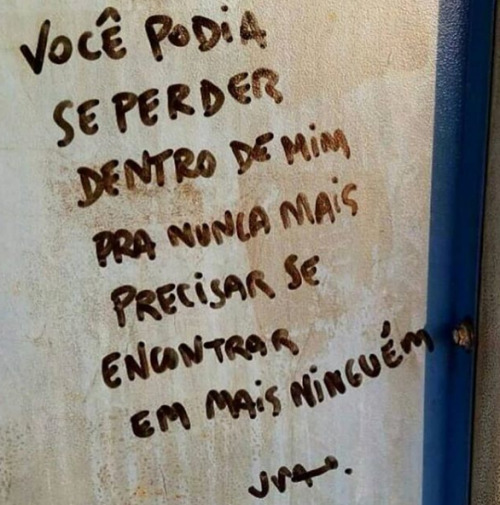 VOCÊ PODIA
SE PERDER
DENTRO DE MIM
PRA NUNCA MAIS
PRECISAR SE
ENCONTRAR
EM MAIS NINGUÉM